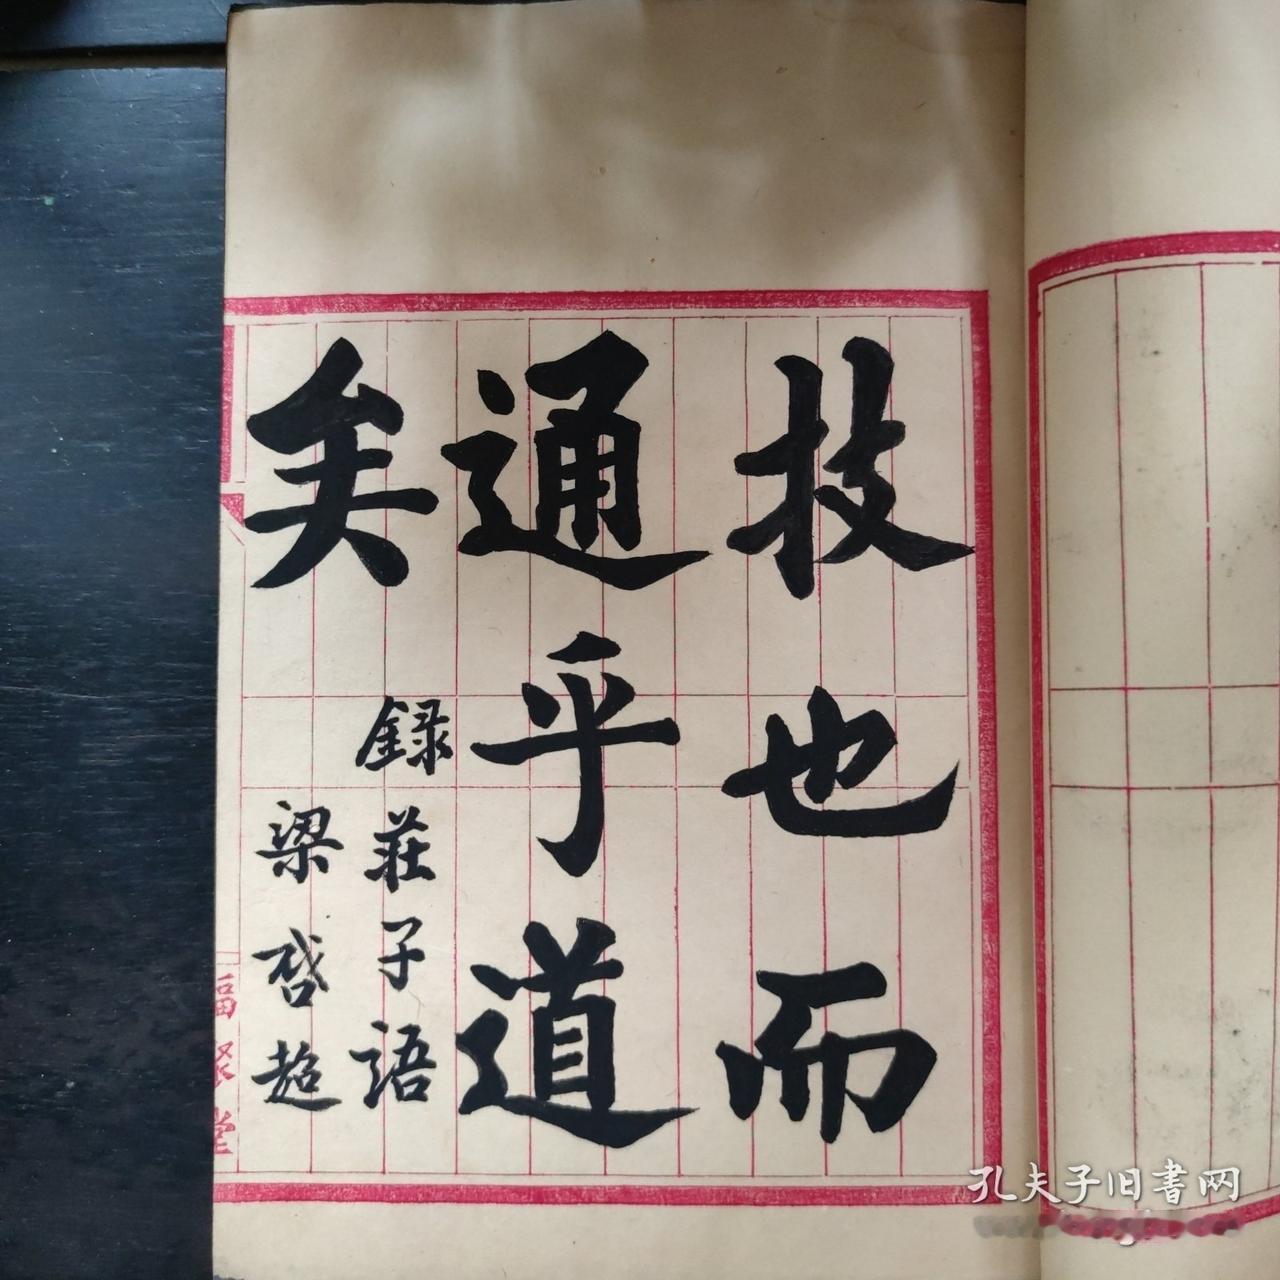 技也而
通乎道
矣
録莊子語
梁啓超
福聚堂
孔夫子旧書网